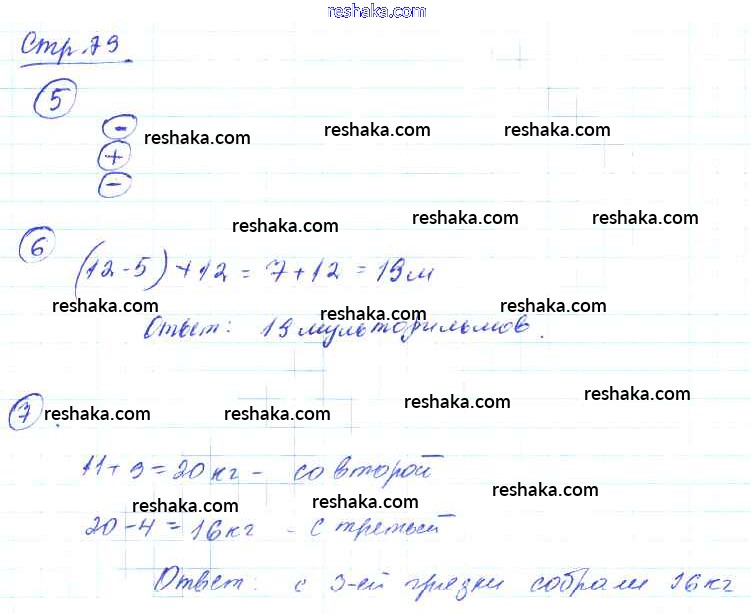 reshaka.com
Стр. 79.
5
-
reshaka.com reshaka.com reshaka.com
+
-
reshaka.com reshaka.com reshaka.com
6
(12-5)+12 = 7+12 = 19м
reshaka.com reshaka.com reshaka.com
Ответ: 19 мультфильмов.
reshaka.com
7. reshaka.com reshaka.com reshaka.com
11+9=20кг - со второй
reshaka.com reshaka.com reshaka.com
20-4=16кг - с третьей
Ответ: с 3-ей грядки собрали 16кг